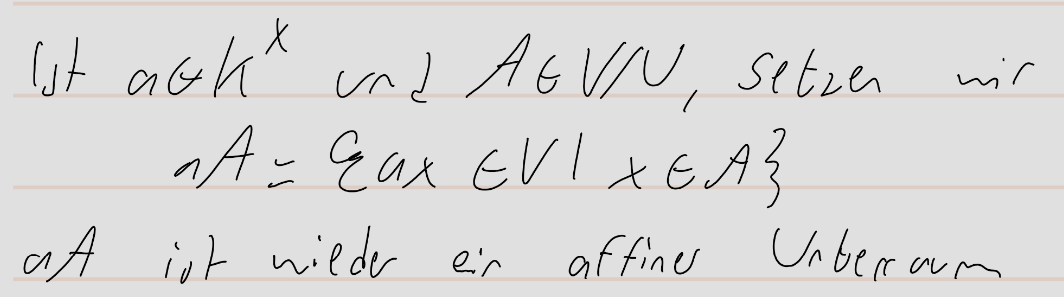 Ist a∈K^× und A∈V/U, setzen wir
aA = {ax ∈ V | x ∈ A}
aA ist wieder ein affiner Unterraum